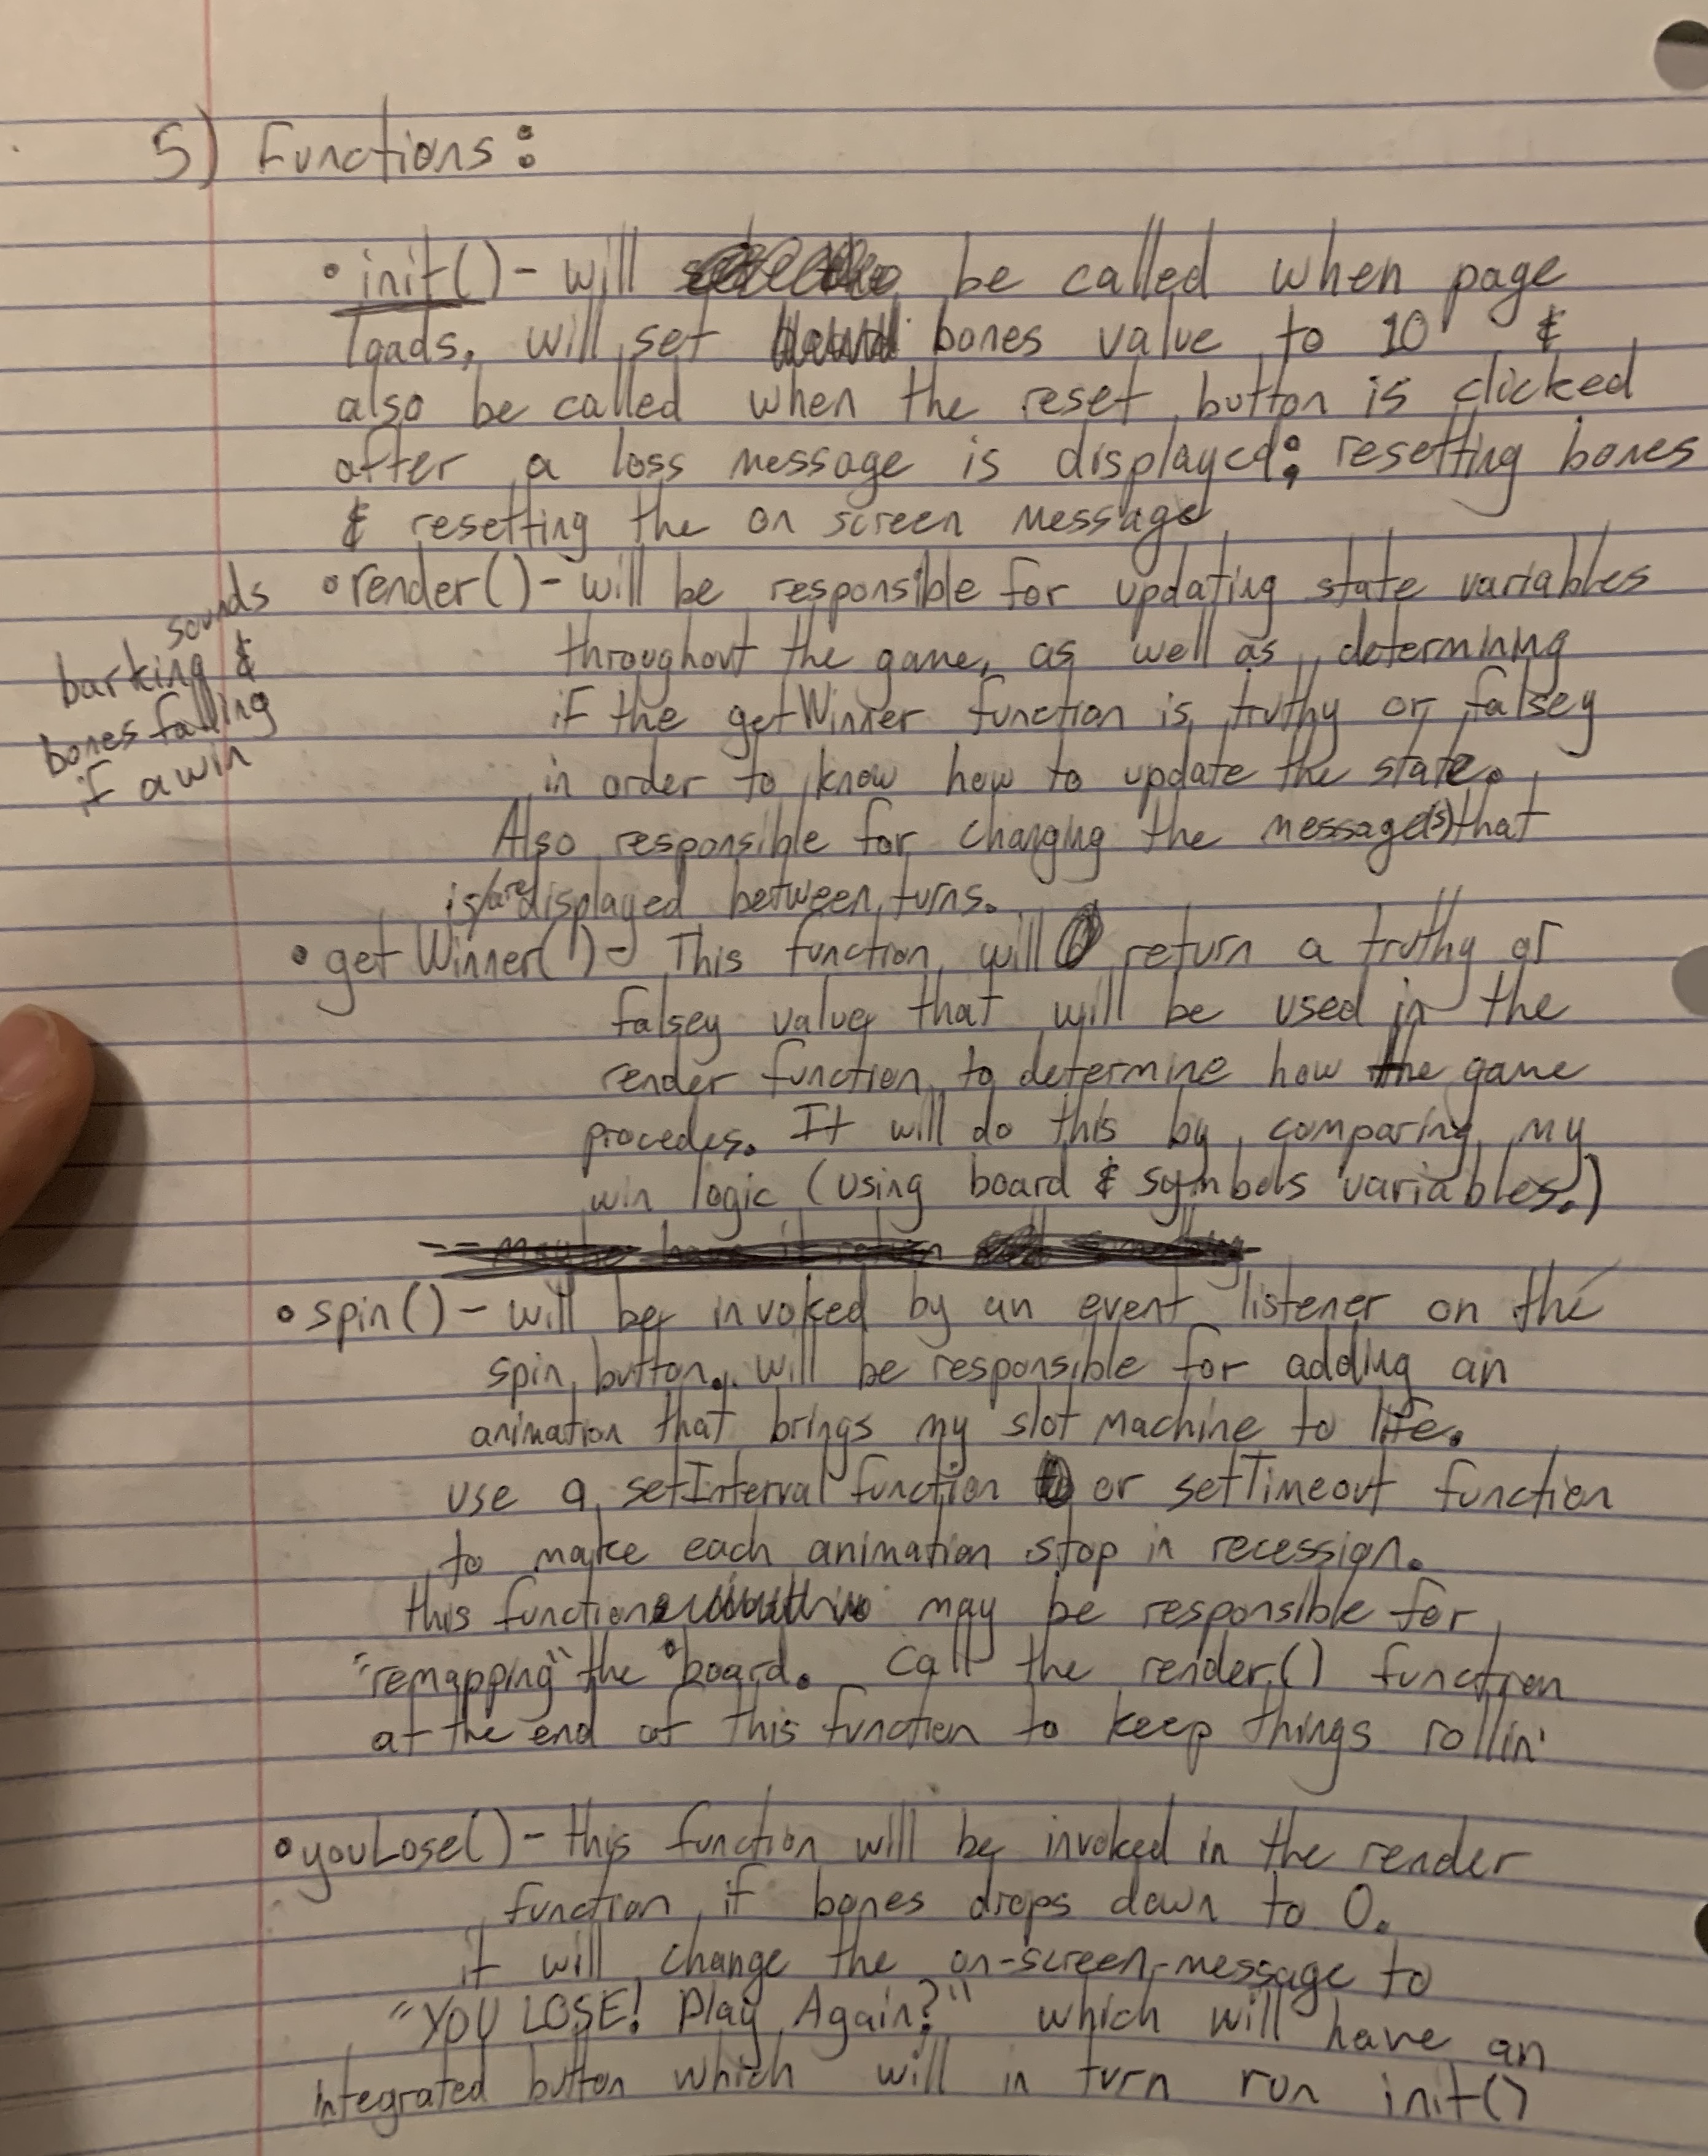 5) Functions:
• init() - will be called when page
loads, will set bones value to 10 &
also be called when the reset button is clicked
after a loss message is displayed; resetting bones
& resetting the on screen message
• render() - will be responsible for updating state variables
throughout the game, as well as determining
if the getWinner function is truthy or falsey
in order to know how to update the state.
Also responsible for changing the message(s) that
is/are displayed between turns.
sounds
barking &
bones falling
if a win
• getWinner() - This function will return a truthy or
falsey value that will be used in the
render function to determine how the game
procedes. It will do this by comparing my
win logic (using board & symbols variables.)
• spin() - will be invoked by an event listener on the
spin button. will be responsible for adding an
animation that brings my slot machine to life.
use a setInterval function or setTimeout function
to make each animation stop in recession.
this function may be responsible for
"remapping" the board. Call the render() function
at the end of this function to keep things rollin'
• youLose() - this function will be invoked in the render
function if bones drops down to 0.
it will change the on-screen-message to
"YOU LOSE! Play Again?" which will have an
integrated button which will in turn run init()